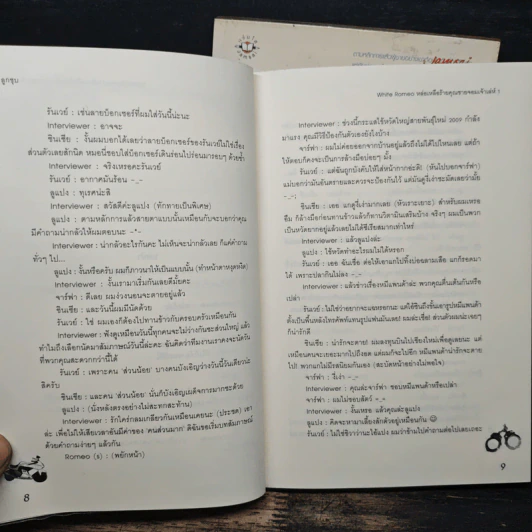 ลูกชุบ
รันเวย์ : เช่นลายบ็อกเซอร์ที่ผมใส่วันนี้น่ะนะ
Interviewer : อาจจะ
ชินเซีย : งั้นผมบอกได้เลยว่าลายบ็อกเซอร์ของรันเวย์ไม่ใช่เรื่อง
ส่วนตัวเลยสักนิด หมอนี่ชอบใส่บ็อกเซอร์เดินร่อนไปร่อนมารอบๆ ตัวซ้ำ
Interviewer : จริงเหรอคะรันเวย์
รันเวย์ : อากาศมันร้อน -_-
ลูแปง : ทุเรศน่ะสิ
Interviewer : สวัสดีค่ะลูแปง (ทักทายเป็นพิเศษ)
ลูแปง : ตามหลักการแล้วสายตาแบบนั้นเหมือนกับจะบอกว่าคุณ
มีคำถามน่ากลัวให้ผมตอบนะ -*-
Interviewer : น่ากลัวอะไรกันคะ ไม่เห็นจะน่ากลัวเลย ก็แค่คำถาม
ทั่วๆ ไป...
ลูแปง : งั้นหรือครับ ผมก็ภาวนาให้เป็นแบบนั้น (ทำหน้าตาหงุดหงิด)
Interviewer : งั้นเรามาเริ่มกันเลยดีมั้ยคะ
จาร์ฟา : ดีเลย ผมง่วงนอนจะตายอยู่แล้ว
ชินเซีย : และวันนี้ผมมีนัดด้วย
รันเวย์ : ใช่ ผมเองก็ต้องไปทานข้าวกับครอบครัวเหมือนกัน
Interviewer : ฟังดูเหมือนวันนี้ทุกคนจะไม่ว่างกันซะส่วนใหญ่ แล้ว
ทำไมถึงเลือกนัดมาสัมภาษณ์วันนี้ล่ะคะ อันติดว่าที่มงานเราคงจะนัดวัน
ที่พวกคุณสะดวกกว่านี้ได้
รันเวย์ : เพราะคน 'ส่วนน้อย' บางคนบังเอิญว่างวันนี้วันเดียวน่ะ
สิครับ
ชินเซีย : และคน 'ส่วนน้อย' นั่นก็บังเอิญเผด็จการมากซะด้วย
ลูแปง : (นั่งหลังตรงอย่างไม่สะทกสะท้าน)
Interviewer : รักใคร่กลมเกลียวกันเหมือนเคยนะ (ประชด) เอา
ล่ะ เพื่อไม่ให้เสียเวลาอันมีค่าของ 'คนส่วนมาก' ดิฉันขอเริ่มบทสัมภาษณ์
ด้วยคำถามง่ายๆ แล้วกัน
Romeo (s) : (พยักหน้า)
8
White Romeo หล่อเหลือร้ายคุณชายจอมเจ้าเล่ห์ 1
Interviewer : ช่วงนี้กระแสไข้หวัดใหญ่สายพันธุ์ใหม่ 2009 กำลัง
มาแรง คุณมีวิธีป้องกันตัวเองยังไงบ้าง
จาร์ฟา : ผมไม่ค่อยออกจากบ้านอยู่แล้วถึงไม่ได้ไปไหนเลย แต่ถ้า
ให้ตอบก็คงจะเป็นการล้างมือบ่อยๆ มั้ง
รันเวย์ : แต่ฉันถูกบังคับให้ใส่หน้ากากอ่ะดิ! (หันไปบอกจาร์ฟา)
แม่บอกว่ามันอันตรายและควรจะป้องกันไว้ แต่มันดูงี่เง่าชะมัดเลยว่ามั้ย
-_-
ชินเซีย : เออ แกดูงี่เง่ามากเลย (หัวเราะเยาะ) สำหรับผมเหรอ
อืม ก็ล้างมือก่อนทานข้าวแล้วก็ทานวิตามินเสริมบ้าง จริงๆ ผมเป็นพวก
เป็นหวัดยากอยู่แล้วเลยไม่ได้ซีเรียสมากเท่าไหร่
Interviewer : แล้วลูแปงล่ะ
ลูแปง : โรคหวัดทำอะไรผมไม่ได้หรอก
รันเวย์ : เออ ฉันเชื่อ ต่อให้เอาแกไปทิ้งบ่อฉลามเสือ แกก็รอดมา
ได้ เพราะปลากินไม่ลง -_-
Interviewer : แล้วข่าวเรื่องหมีแพนด้าล่ะ พวกคุณตื่นเต้นกันหรือ
เปล่า
รันเวย์ : ไม่หรือไม่ว่าอยากจะแฉหรอกนะ แต่ไอ้ชินถึงขั้นเอารูปหมีแพนด้า
ตั้งเป็นพื้นหลังโทรศัพท์แทนรูปแฟนมันเลย! ผมล่ะเชื่อ! ส่วนตัวผมน่ะเฉยๆ
ก็น่ารักดี
ชินเซีย : น่ารักจะตาย! ผมลงทุนบินไปเชียงใหม่เพื่อดูเลยนะ แต่
เหมือนคนจะเยอะมากไปถึงอด แต่ผมก็จะไปอีก หมีแพนด้าน่ารักจะตาย
ไป! พวกแกไม่มีรสนิยมกัน (สะบัดหน้าอย่างไม่พอใจ)
จาร์ฟา : งี่เง่า -_-
Interviewer : คุณล่ะจาร์ฟา ชอบหมีแพนด้าหรือเปล่า
จาร์ฟา : ผมไม่ชอบสัตว์ -_-
Interviewer : งั้นเหรอ แล้วคุณล่ะลูแปง
ลูแปง : คิดจะหามาเลี้ยงสักตัวอยู่เหมือนกัน ☺
รันเวย์ : ไม่ใช่ชิวาว่านะไอ้แปง ผมว่าข้ามไปคำถามต่อไปเลยเถอะ
9